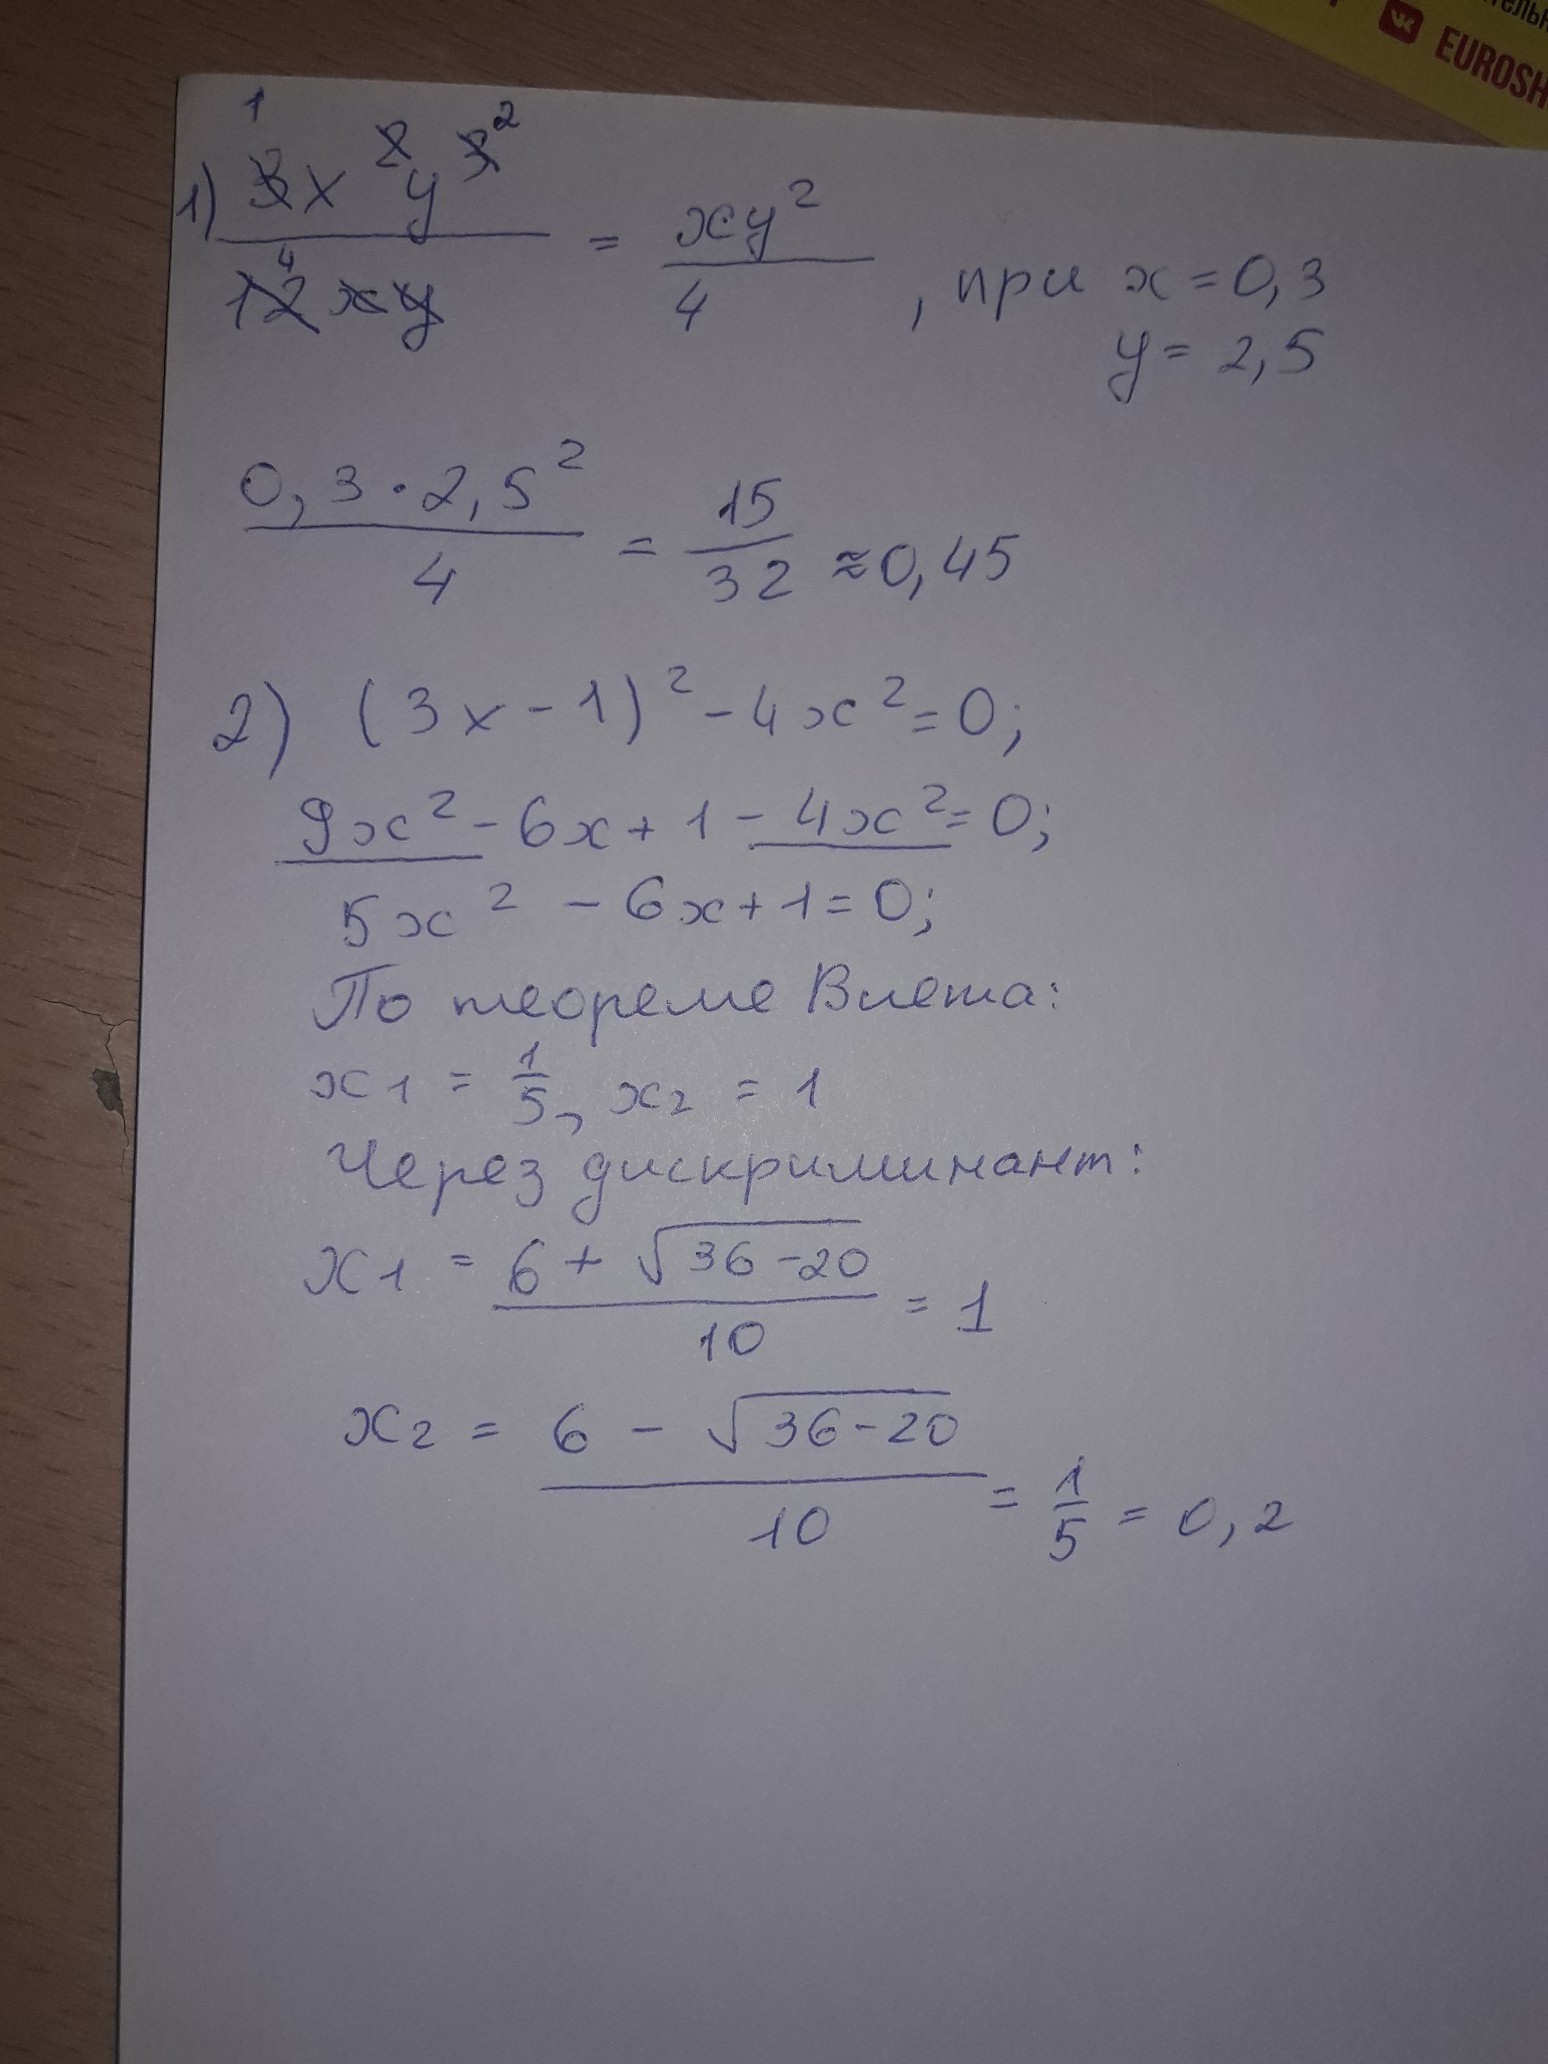 EUROSH
1) 3x²y³² / 12⁴xy = xy² / 4, при x = 0,3
y = 2,5
0,3 · 2,5² / 4 = 15/32 ≈ 0,45
2) (3x - 1)² - 4x² = 0;
9x² - 6x + 1 - 4x² = 0;
5x² - 6x + 1 = 0;
По теореме Виета:
x1 = 1/5, x2 = 1
Через дискриминант:
x1 = 6 + √36-20 / 10 = 1
x2 = 6 - √36-20 / 10 = 1/5 = 0,2